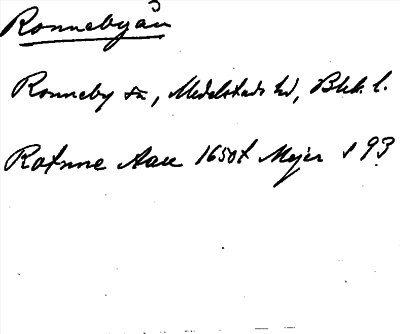 Ronnebyån
Ronneby sn, Medelstads hd, Blek. l.
Rotnne Aaeu 1650t Mejer s 93